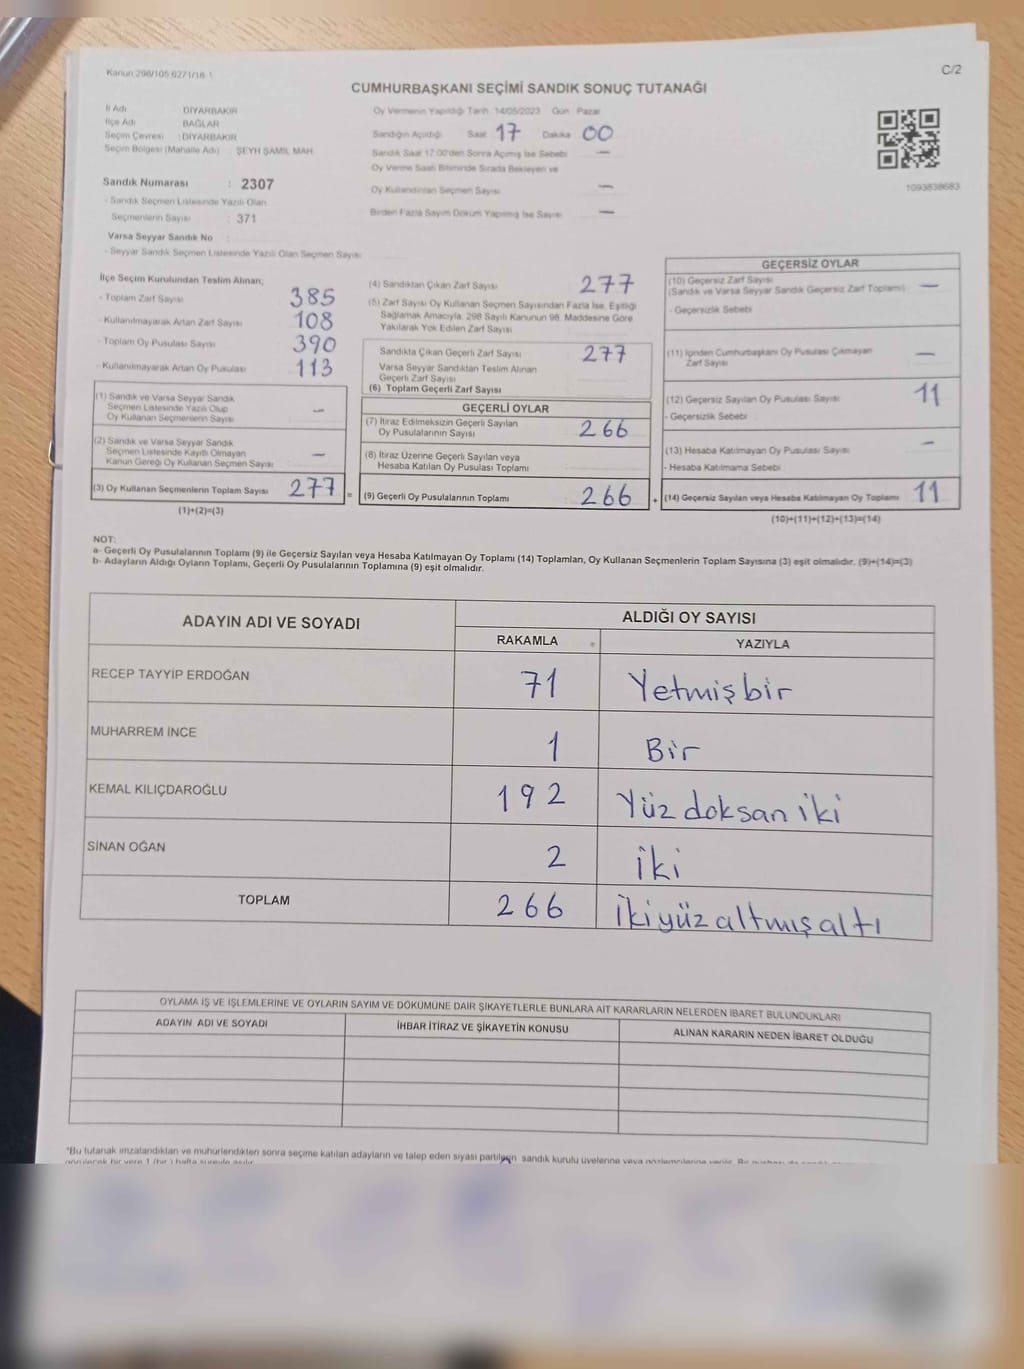 Kanun 298/105 6271/18-1
C/2
CUMHURBAŞKANI SEÇİMİ SANDIK SONUÇ TUTANAĞI
İl Adı DİYARBAKIR
İlçe Adı BAĞLAR
Seçim Çevresi : DİYARBAKIR
Seçim Bölgesi (Mahalle Adı) : ŞEYH ŞAMİL MAH.
Sandık Numarası : 2307
- Sandık Seçmen Listesinde Yazılı Olan
Seçmenlerin Sayısı : 371
Varsa Seyyar Sandık No :
- Seyyar Sandık Seçmen Listesinde Yazılı Olan Seçmen Sayısı
Oy Vermenin Yapıldığı Tarih 14/05/2023 Gün Pazar
Sandığın Açıldığı Saat 17 Dakika 00
Sandık Saat 17:00'den Sonra Açılmış İse Sebebi —
Oy Verme Saati Bitiminde Sırada Bekleyen ve
Oy Kullandırılan Seçmen Sayısı —
Birden Fazla Sayım Döküm Yapılmış İse Sayısı —
1093838683
İlçe Seçim Kurulundan Teslim Alınan;
- Toplam Zarf Sayısı 385
- Kullanılmayarak Artan Zarf Sayısı 108
- Toplam Oy Pusulası Sayısı 390
- Kullanılmayarak Artan Oy Pusulası 113
(1) Sandık ve Varsa Seyyar Sandık
Seçmen Listesinde Yazılı Olup
Oy Kullanan Seçmenlerin Sayısı —
(2) Sandık ve Varsa Seyyar Sandık
Seçmen Listesinde Kayıtlı Olmayan
Kanun Gereği Oy Kullanan Seçmen Sayısı —
(3) Oy Kullanan Seçmenlerin Toplam Sayısı 277 =
(1)+(2)=(3)
(4) Sandıktan Çıkan Zarf Sayısı 277
(5) Zarf Sayısı Oy Kullanan Seçmen Sayısından Fazla İse, Eşitliği
Sağlamak Amacıyla, 298 Sayılı Kanunun 98. Maddesine Göre
Yakılarak Yok Edilen Zarf Sayısı
Sandıkta Çıkan Geçerli Zarf Sayısı 277
Varsa Seyyar Sandıktan Teslim Alınan
Geçerli Zarf Sayısı
(6) Toplam Geçerli Zarf Sayısı
GEÇERLİ OYLAR
(7) İtiraz Edilmeksizin Geçerli Sayılan
Oy Pusulalarının Sayısı 266
(8) İtiraz Üzerine Geçerli Sayılan veya
Hesaba Katılan Oy Pusulası Toplamı
(9) Geçerli Oy Pusulalarının Toplamı 266 +
GEÇERSİZ OYLAR
(10) Geçersiz Zarf Sayısı
(Sandık ve Varsa Seyyar Sandık Geçersiz Zarf Toplamı) —
- Geçersizlik Sebebi
(11) İçinden Cumhurbaşkanı Oy Pusulası Çıkmayan
Zarf Sayısı —
(12) Geçersiz Sayılan Oy Pusulası Sayısı 11
- Geçersizlik Sebebi
(13) Hesaba Katılmayan Oy Pusulası Sayısı —
- Hesaba Katılmama Sebebi
(14) Geçersiz Sayılan veya Hesaba Katılmayan Oy Toplamı 11
(10)+(11)+(12)+(13)=(14)
NOT:
a- Geçerli Oy Pusulalarının Toplamı (9) ile Geçersiz Sayılan veya Hesaba Katılmayan Oy Toplamı (14) Toplamları, Oy Kullanan Seçmenlerin Toplam Sayısına (3) eşit olmalıdır. (9)+(14)=(3)
b- Adayların Aldığı Oyların Toplamı, Geçerli Oy Pusulalarının Toplamına (9) eşit olmalıdır.
ADAYIN ADI VE SOYADI ALDIĞI OY SAYISI
RAKAMLA YAZIYLA
RECEP TAYYİP ERDOĞAN 71 Yetmişbir
MUHARREM İNCE 1 Bir
KEMAL KILIÇDAROĞLU 192 Yüz doksan iki
SİNAN OĞAN 2 iki
TOPLAM 266 ikiyüz altmış altı
OYLAMA İŞ VE İŞLEMLERİNE VE OYLARIN SAYIM VE DÖKÜMÜNE DAİR ŞİKAYETLERLE BUNLARA AİT KARARLARIN NELERDEN İBARET BULUNDUKLARI
ADAYIN ADI VE SOYADI İHBAR İTİRAZ VE ŞİKAYETİN KONUSU ALINAN KARARIN NEDEN İBARET OLDUĞU
*Bu tutanak imzalandıktan ve mühürlendikten sonra seçime katılan adayların ve talep eden siyasi partilerin sandık kurulu üyelerine veya gözlemcilerine verilir.